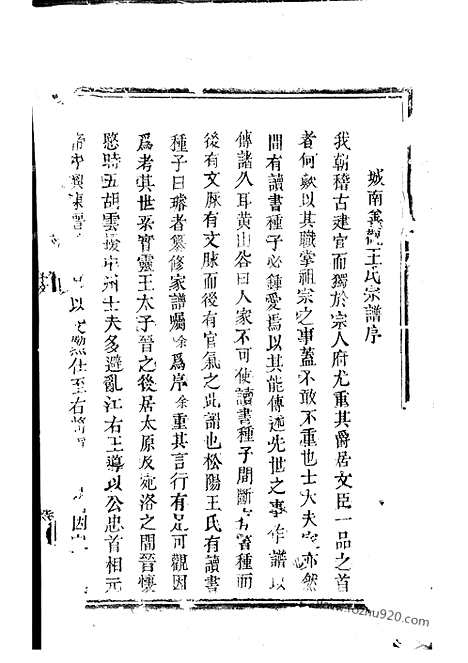 城南善觀王氏宗譜序
我朝稽古建官而獨於宗人府尤重其爵居文臣一品之首
者何歟以其職掌祖宗之事蓋不敢不重也士大夫家亦然
間有讀書種子必鍾愛焉以其能傳述先世之事作譜以
傳諸久耳黃山谷曰人家不可使讀書種子間斷有書種而
後有文脉有文脉而後有官氣之此謂也松陽王氏有讀書
種子曰璿者纂修家譜囑余爲序余重其言行有足可觀因
爲考其世系實靈王太子晉之後居太原及宛洛之間晉懷
愍時五胡雲擾中州士夫多避亂江右王導以公忠首相元
帝中興東晉 以 仕至右將 因
www.fozhu920.com